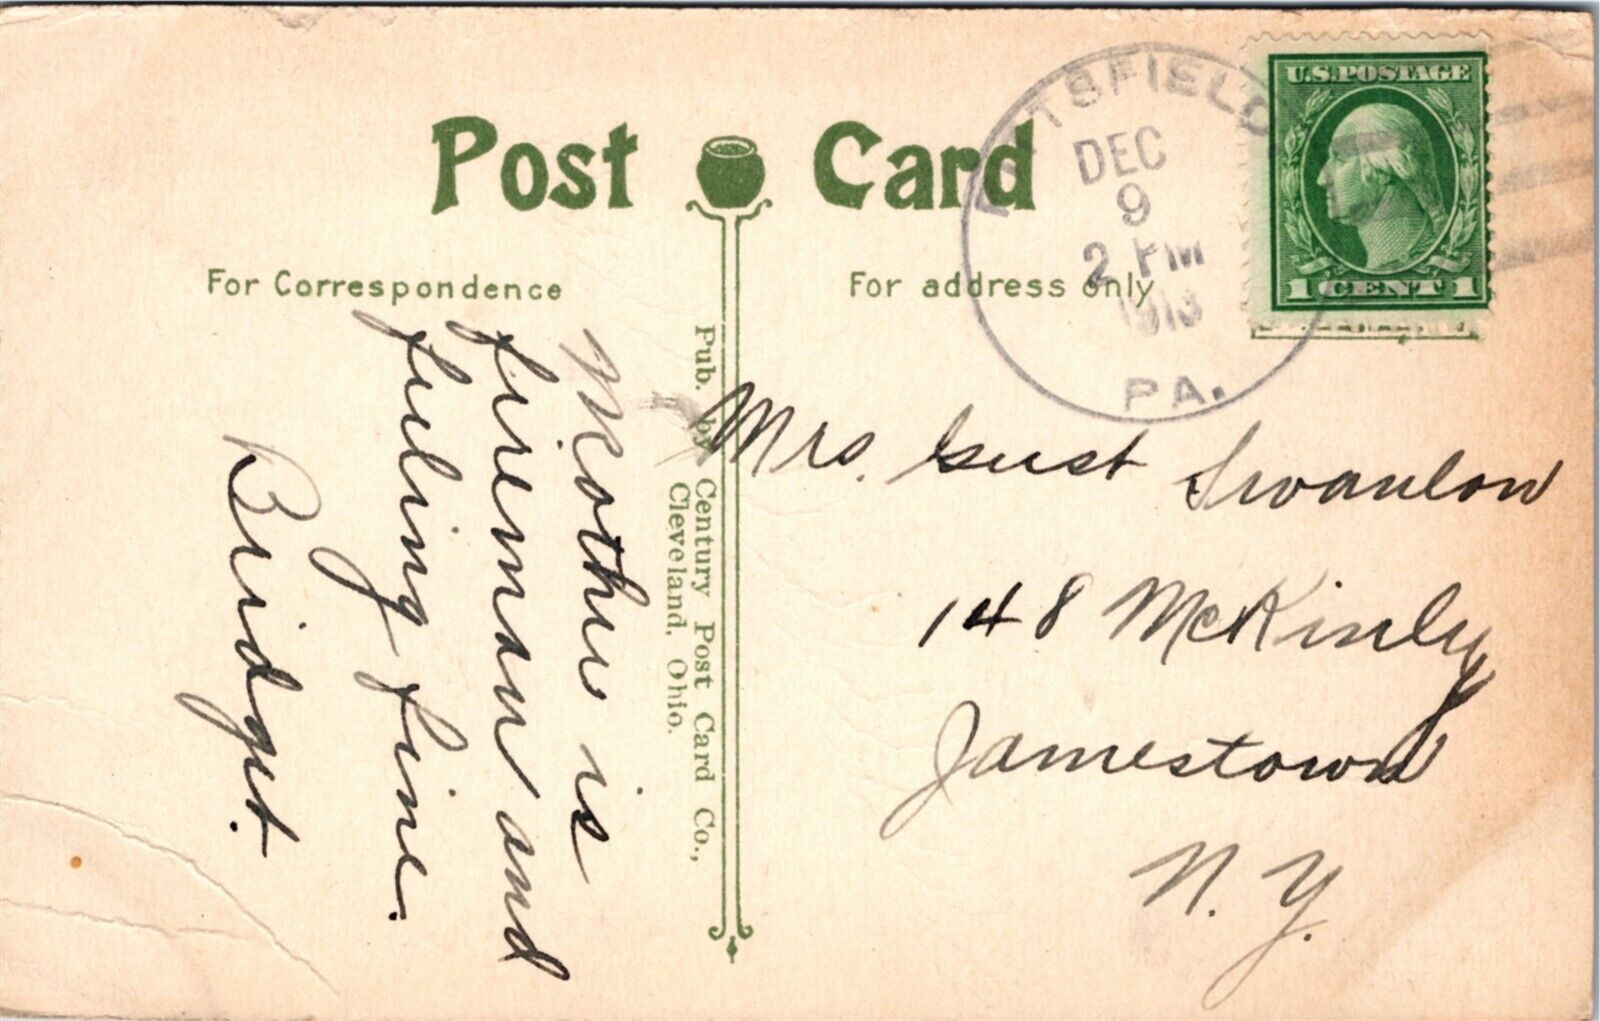 Post Card
For Correspondence
For address only
PITTSFIELD
DEC
9
2 PM
1913
PA.
U.S. POSTAGE
1 CENT 1
Mother is
fireman and
feeling fine.
Bridget.
Pub. by Century Post Card Co.,
Cleveland, Ohio.
Mrs. Gust Swanson
148 McKinley
Jamestown
N. Y.